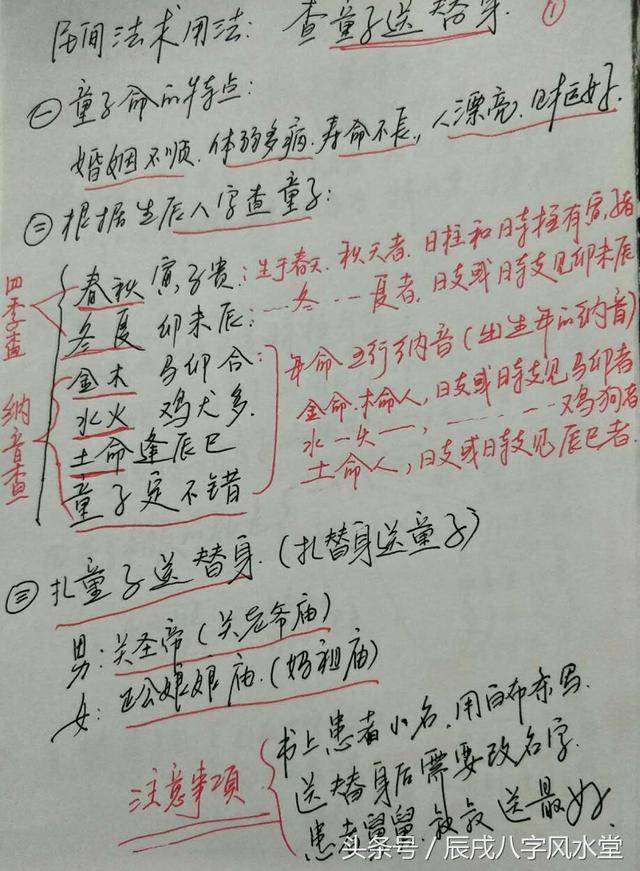 民间法术用法: 查童子送替身. ①
㊀童子命的特点:
婚姻不顺. 体弱多病. 寿命不长, 人漂亮.
㊁根据生辰八字查童子:
四季查
春秋 寅子贵: 生于春天. 秋天者. 日柱和时柱有寅,子者
冬夏 卯未辰: ---冬---夏者, 日支或时支见卯未辰
纳音查
金木 马卯合: 年命五行纳音(出生年的纳音)
金命.木命人, 日支或时支见马卯者
水火 鸡犬多. 水---火---, --------鸡狗者
土命逢辰巳 土命人, 日支或时支见辰巳者.
童子定不错
㊂扎童子送替身. (扎替身送童子)
男: 关圣帝(关老爷庙)
女: 娘娘庙. (妈祖庙)
注意事项
书上患者小名, 用白布条写.
送替身后需要改名字.
患者舅舅. 叔叔送最好.
头条号/辰戌八字风水堂